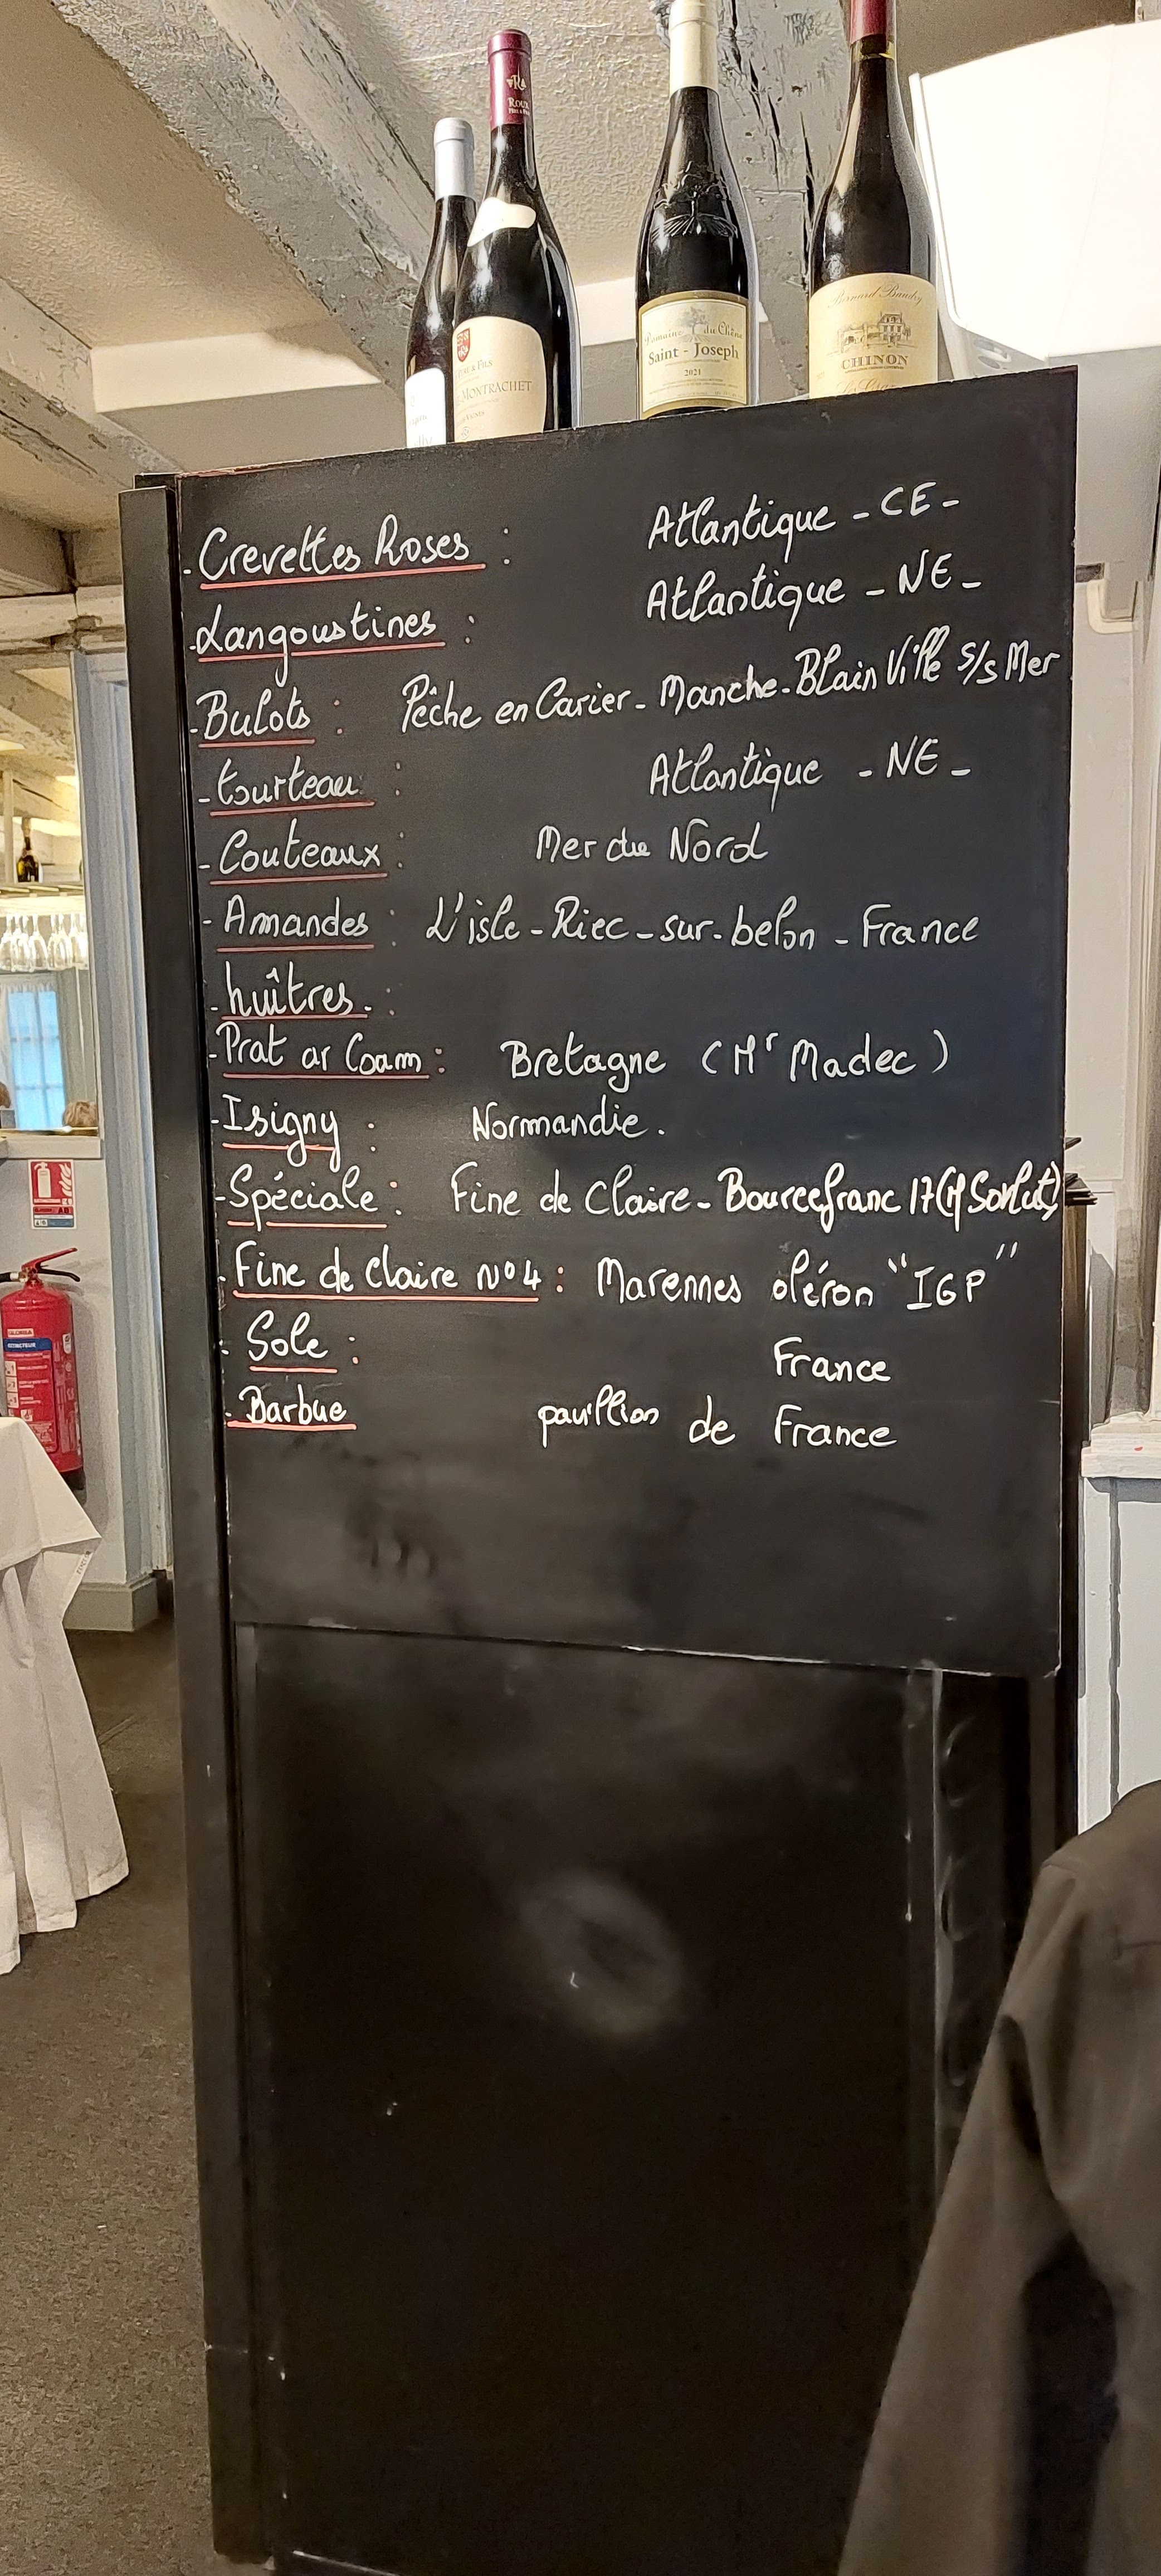 ROUX
PÈRE & FILS
PÈRE & FILS
MONTRACHET
Domaine du Chêne
Saint - Joseph
2021
Bernard Baudry
CHINON
- Crevettes Roses : Atlantique - CE -
- Langoustines : Atlantique - NE -
- Bulots : Pêche en Casier - Manche - BlainVille S/s Mer
- tourteau : Atlantique - NE -
- Couteaux : Mer du Nord
- Amandes : L'isle - Riec - sur - belon - France
- huîtres :
- Prat ar Coam : Bretagne (Mr Madec)
- Isigny : Normandie.
- Spéciale : Fine de Claire - Bourcefranc 17 (M Sorlut)
- Fine de Claire N°4 : Marennes oléron "IGP"
- Sole : France
- Barbue pavillion de France
EXTINCTEUR